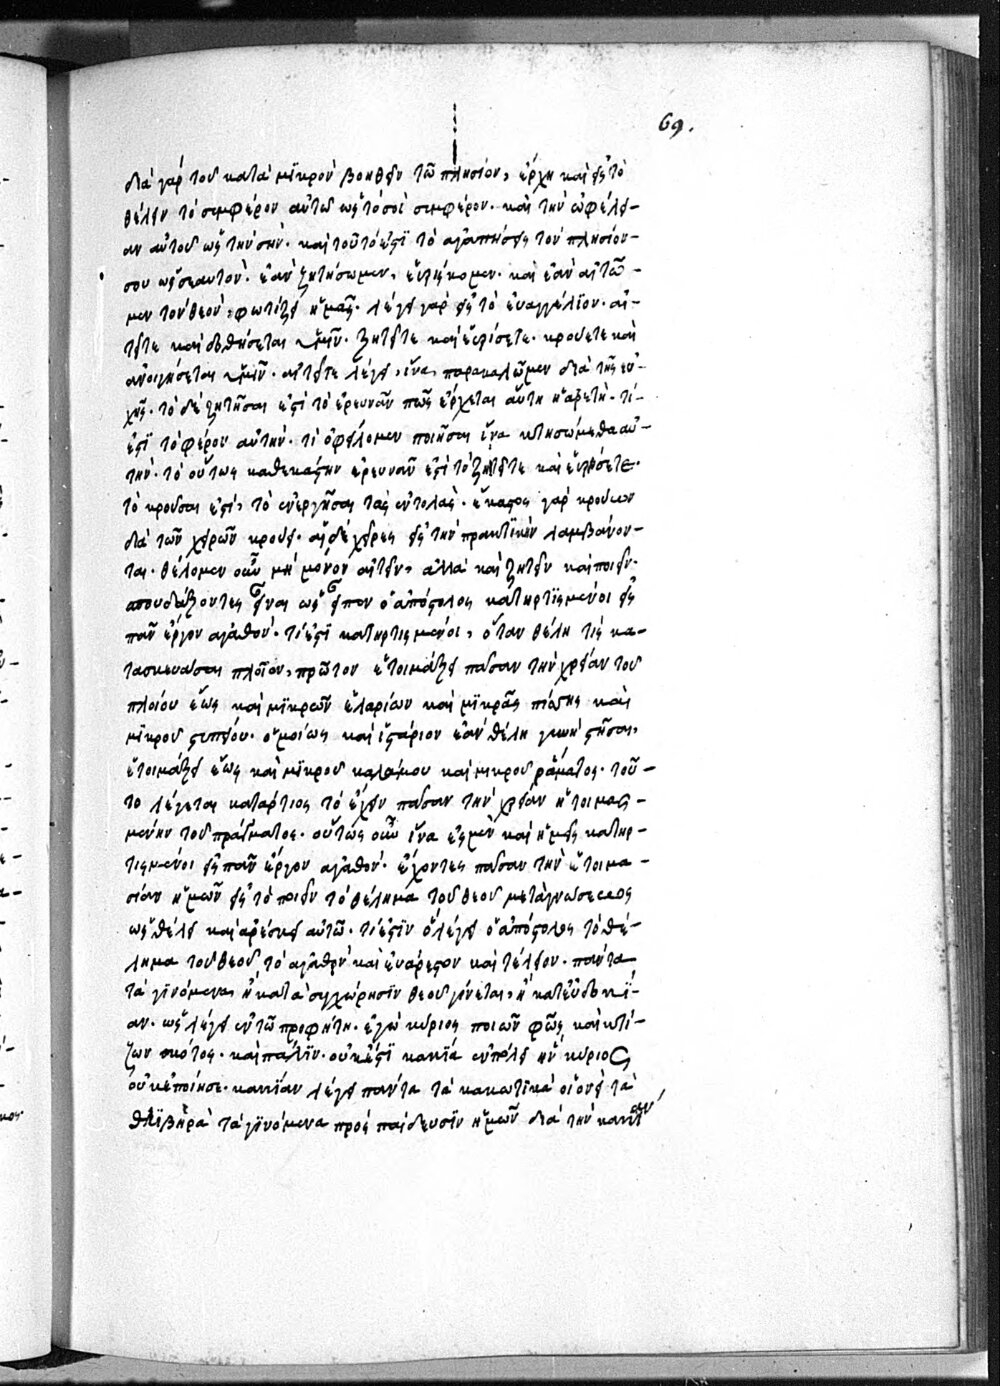 69.
διὰ γὰρ τοῦ κατὰ μϊκρὸν βοηθεῖν τῶ πλησίον, ἔρχη καὶ εἰς τὸ
θέλειν τὸ συμφέρον αὐτῶ ὡς τὸ σοὶ συμφέρον· καὶ τὴν ὠφέλει-
αν αὐτοῦ ὡς τὴν σὴν· καὶ τοῦτό ἐστϊ τὸ ἀγαπήσεις τὸν πλησίον-
σου ὡς σεαυτὸν· ἐὰν ζητήσωμεν, εὑρίσκομεν· καὶ ἐὰν αἰτῶ-
μεν τὸν θεὸν, φωτίζει ἡμᾶς· λέγει γὰρ εἰς τὸ ἐυαγγέλϊον· αἰ-
τεῖτε καὶ δοθήσεται ὑμῖν· ζητεῖτε καὶ εὑρίσετε· κρούετε καὶ
ἀνοιγήσεται ὑμῖν· αἰτεῖτε λέγει, ἵνα παρακαλῶμεν διὰ τῆς εὐ-
χῆς· τὸ δὲ ζητῆσαι ἐστὶ τὸ ἐρευνᾶν πῶς ἔρχεται αὕτη ἡ ἀρετὴ· τί-
ἐστϊ τὸ φέρον αὐτὴν· τί ὀφείλομεν ποιῆσαι ἵνα κτησώμεθα αὐ-
τὴν· τὸ οὕτως καθεκάστην ἐρευνᾶν ἐστὶ τὸ ζητεῖτε καὶ εὑρήσετε·
τὸ κροῦσαι ἐστὶ, τὸ ἐνεργῆσαι τὰς ἐντολὰς· ἕκαστος γὰρ κρούων
διὰ τῶν χειρῶν κρούει· αἱ δὲ χεῖρες εἰς τὴν πρακτϊκὴν λαμβάνον-
ται· θέλομεν οὖν μὴ μόνον αἰτεῖν, ἀλλὰ καὶ ζητεῖν καὶ ποιεῖν·
σπουδάζοντες εἶναι ὡς εἶπεν ὁ ἀπόστολος κατηρτϊσμένοι εἰς
πᾶν ἔργον ἀγαθὸν· τί ἐστϊ κατηρτισμένοι, ὅταν θέλη τὶς κα-
τασκευάσαι πλοῖον, πρῶτον ἑτοιμάζει πᾶσαν τὴν χρείαν τοῦ
πλοίου ἕως καὶ μϊκρῶν ἐλαρίων καὶ μϊκρᾶς πίσσης καὶ
μϊκροῦ στυπείου· ὁμοίως καὶ ἱστάριον ἐὰν θέλη γυνὴ στῆσαι,
ἑτοιμάζει ἕως καὶ μϊκροῦ καλάμου καὶ μικροῦ ράματος· τοῦ-
το λέγεται κατάρτισις τὸ ἔχειν πᾶσαν τὴν χρείαν ἡτοιμασ-
μένην τοῦ πράγματος· οὕτως οὖν ἵνα ἐσμὲν καὶ ἡμεῖς κατηρ-
τισμένοι εἰς πᾶν ἔργον ἀγαθὸν· ἔχοντες πᾶσαν τὴν ἑτοιμα-
σίαν ἡμῶν εἰς τὸ ποιεῖν τὸ θέλημα τοῦ θεοῦ μετὰ γνώσεως
ὡς θέλει καὶ ἀρέσκει αὐτῶ· τί ἐστϊν ὃ λέγει ὁ ἀπόστολος τὸ θέ-
λημα τοῦ θεοῦ τὸ ἀγαθὸν καὶ ἐυάρεστον καὶ τέλειον· πάντα
τὰ γϊνόμενα ἢ κατὰ συγχώρησϊν θεοῦ γίνεται, ἢ κατ ἐυδοκϊ-
αν· ὡς λέγει ἐν τῶ προφήτη· ἐγὼ κύριος ποιῶν φῶς καὶ κτί-
ζων σκότος· καὶ πάλϊν· οὐκ ἔστϊ κακΐα ἐν πόλει ἣν κύριος
οὐκ ἐποίησε· κακΐαν λέγει πάντα τὰ κακωτϊκὰ οἱονεὶ τὰ
θλϊβηρὰ τὰ γϊνόμενα πρὸς παίδευσϊν ἡμῶν διὰ τὴν κακΐαν